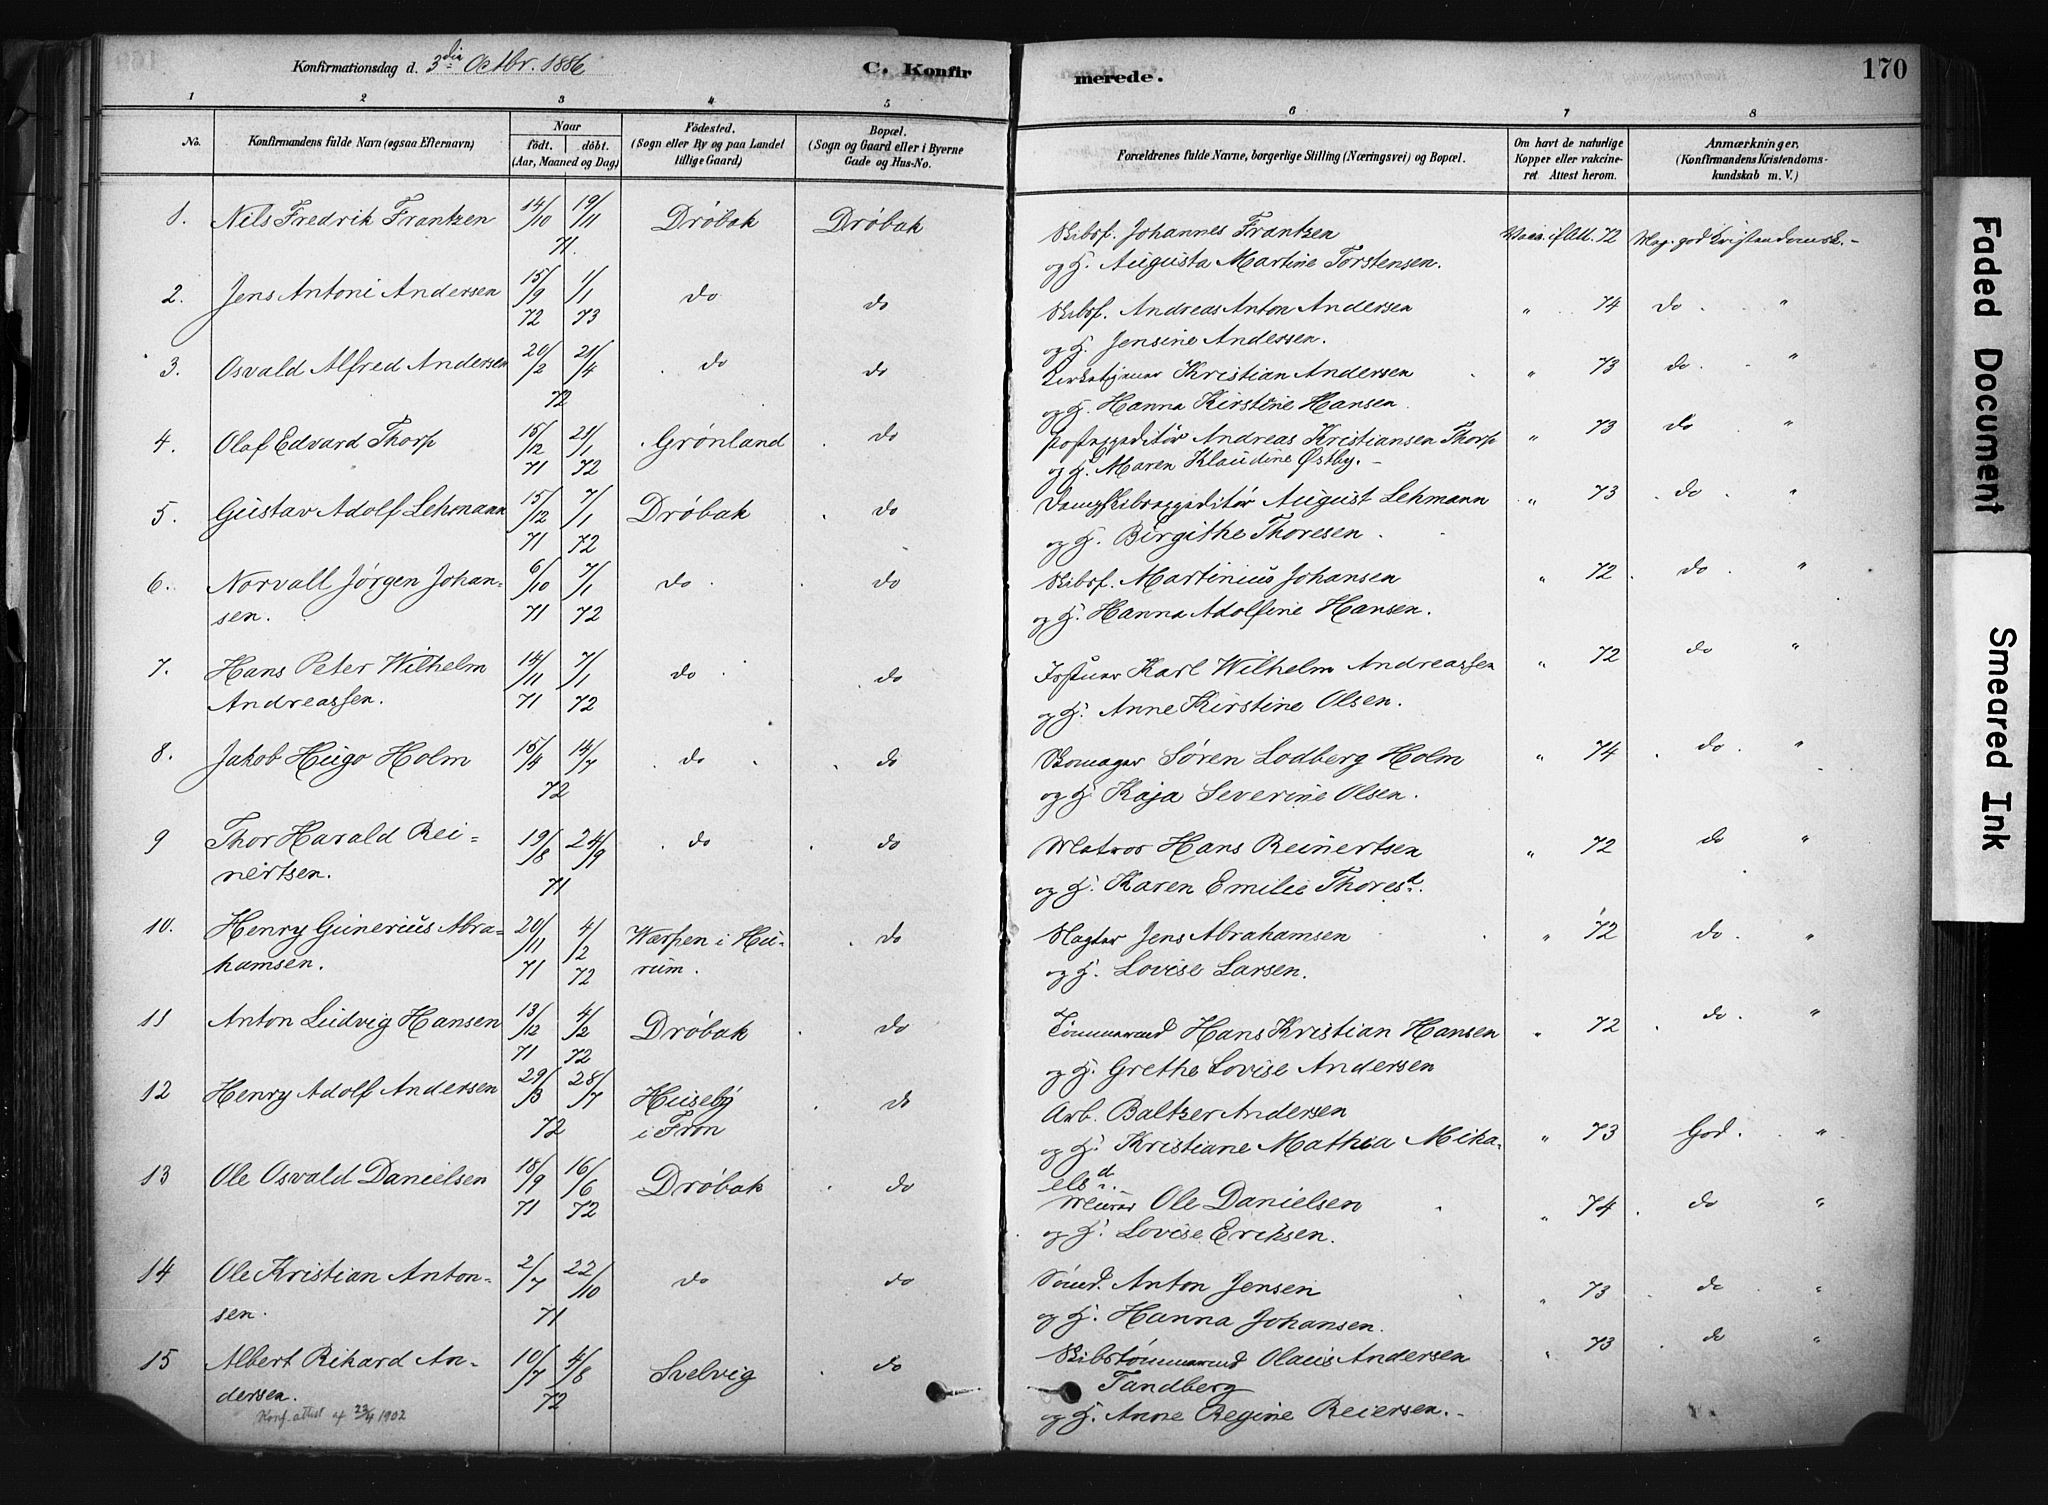 Konfirmationsdag d. 3die Octbr. 1886
C. Konfir
merede.
170
1 2 3 4 5 6 7 8
No. Konfirmandens fulde Navn (ogsaa Efternavn) Naar født. døbt. (Aar, Maaned og Dag) Fødested. (Sogn eller By og paa Landet tillige Gaard) Bopæl. (Sogn og Gaard eller i Byerne Gade og Hus-No. Forældrenes fulde Navne, borgerlige Stilling (Næringsvei) og Bopæl. Om havt de naturlige Kopper eller vakcineret. Attest herom. Anmærkninger. (Konfirmandens Kristendomskundskab m. V.)
1. Nils Fredrik Frantzen 14/10 19/11 71. Drøbak Drøbak Skibsf. Johannes Frantzen 72 Meg. god Kristendomsk.
og H. Augusta Martine Torstensen.
2. Jens Antoni Andersen 15/9 72 1/1 73 do do Skibsf. Andreas Anton Andersen " 74 do "
og H. Jensine Andersen.
3. Osvald Alfred Andersen 20/2 21/4 72 do do Kirketjener Kristian Andersen " 73 do "
og H. Hanna Kirstine Hansen.
4. Olaf Edvard Thorp 15/12 71 21/1 72 Grønland do Postexpeditør Andreas Kristiansen Thorp " 73 do "
og H. Maren Klaudine Østby.
5. Gustav Adolf Lehmann 15/12 71 7/1 72 Drøbak do Dampskibsexpeditør August Lehmann " 73 do "
og H. Birgithe Thoresen
6. Norvall Jørgen Johan-
sen. 6/10 71 7/1 72 do do Skibsf. Martinius Johansen " 72 do "
og H. Hanna Adolfine Hansen.
7. Hans Peter Wilhelm
Andreassen. 14/11 71 7/1 72 do do Karl Wilhelm Andreassen " 72 do "
og H. Anne Kirstine Olsen.
8. Jakob Hugo Holm 15/4 14/7 72 do do Skomager Søren Lodberg Holm " 74 do "
og H. Kaja Severine Olsen.
9 Thor Harald Rei-
nertsen. 19/8 24/9 71 do do Matros Hans Reinertsen " 72 do "
og H. Karen Emilie Thoresd.
10. Henry Gunerius Abra-
hamsen. 20/11 71 4/2 72 Værpen i Hu-
rum. do Slagter Jens Abrahamsen " 72 do "
og H. Lovise Larsen.
11 Anton Ludvig Hansen 13/12 71 4/2 72 Drøbak do Tømmermd Hans Kristian Hansen " 72 do "
og H. Grethe Lovise Andersen
12 Henry Adolf Andersen 29/3 28/7 72 Huseby
i Fron do Arb. Baltzer Andersen
og H. Kristiane Mathea Mika- " 73 God. "
elsd.
13 Ole Osvald Danielsen 18/9 71 16/6 72 Drøbak do Murer Ole Danielsen " 74 do "
og H. Lovise Eriksen.
14 Ole Kristian Anton-
sen. 2/7 22/10 71 do do Sømd. Anton Jensen " 73 do "
og H. Hanna Johansen.
15 Albert Rikard An-
dersen. 10/7 4/8 72 Svelvig do Skibstømmermd Olaus Andersen " 73 do "
Tandberg
og H. Anne Regine Reiersen.
Konf. attest af 23/4 1902
Faded Document
Smeared Ink